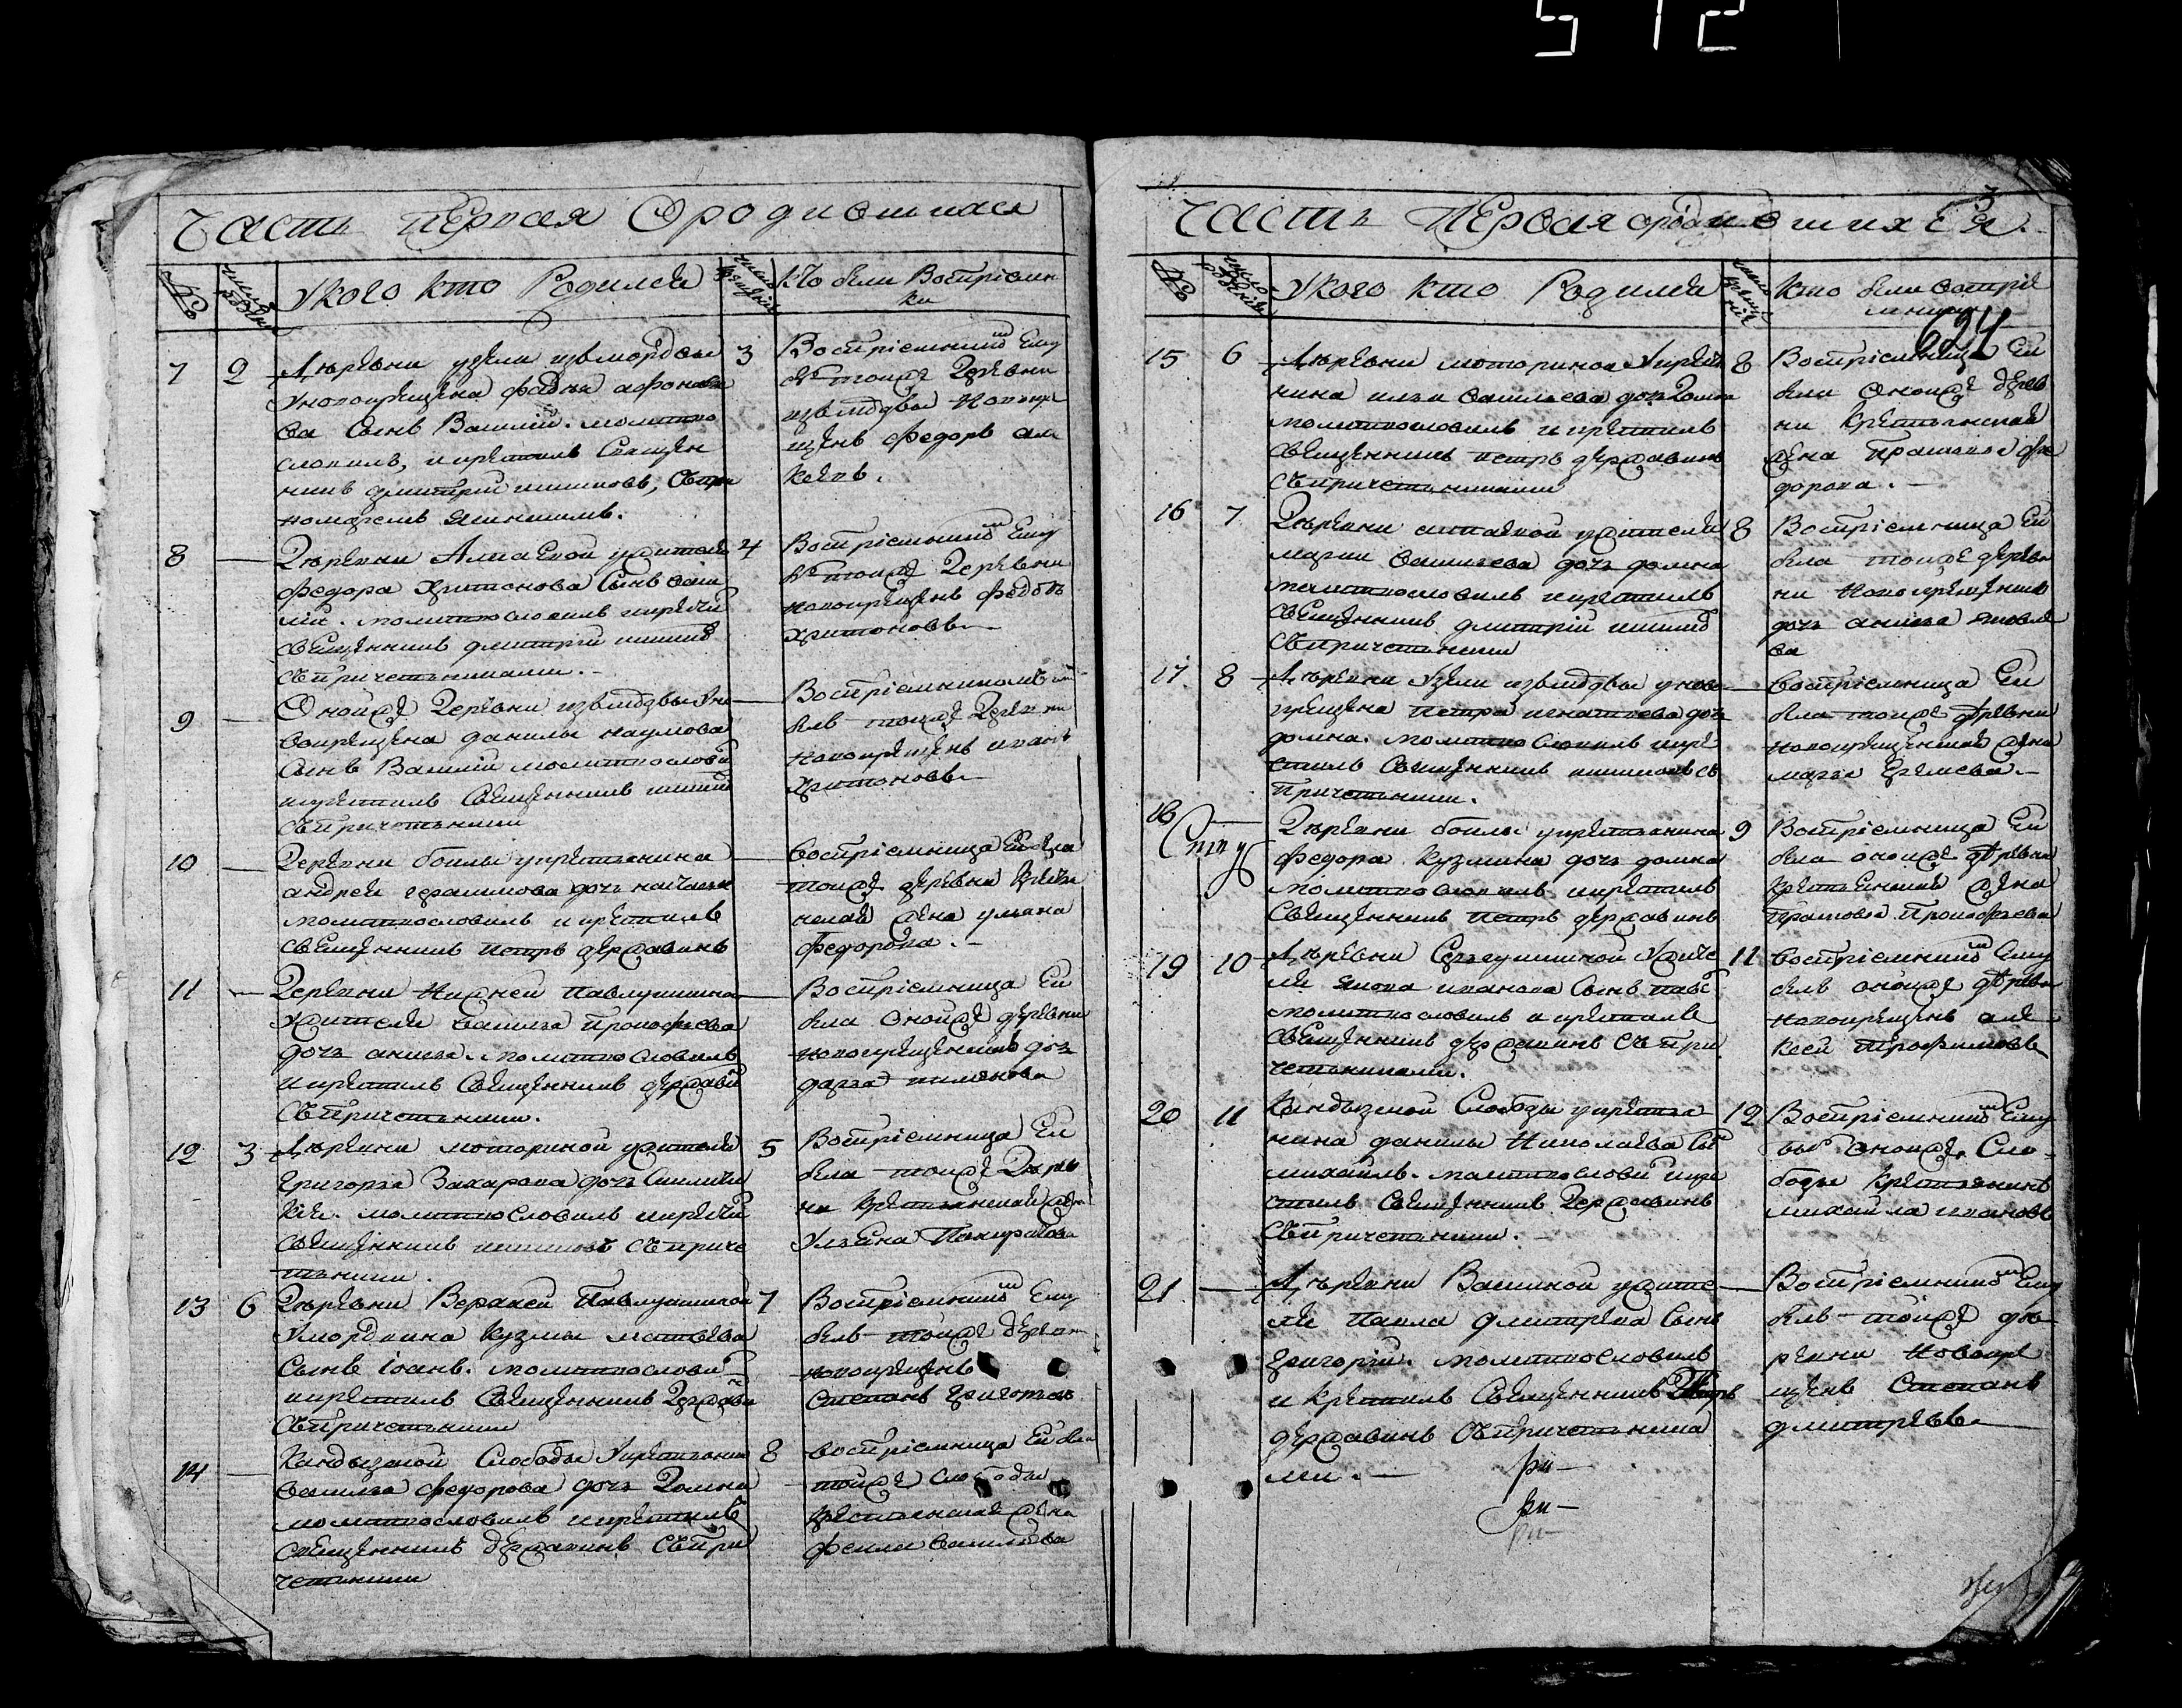 512
Часть первая О родившихся
№
число рождения
У кого кто Родился
число крещенія
Кто были Воспріемни
ки
7 2 Деревни узели изъ мордвы
Уновокрещена фадѣя афонасье
ва Сынъ Василій. молитво
словилъ, и крестилъ Священ
никъ дмитрій
3 Воспріемникъ Ему
тойже Деревни
изъ мордвы Новокре
щенъ Федоръ але
ксѣевъ.
8 Деревни
федора харитонова Сынъ васи
лій. молитвословилъ и крести
священникъ дмитрій
съ причетниками.
4 Воспріемникъ Ему
тойже Деревни
новокрещенъ федотъ
харитоновъ
9 Оной же Деревни изъ мордвы Уно
вокрещена данилы наумова
Сынъ Василій молитвослови
и крестилъ Священникъ
съ причетники
Воспріемникомъ
былъ тойже Деревни
новокрещенъ иванъ
харитоновъ
10 Деревни боклы укрестьянина
андрея герасимова дочь настасья
молитвословилъ и крестилъ
священникъ петръ державинъ
Воспріемница Ей была
тойже деревни крестья
нская жена ульяна
Федорова.
11 Деревни Нижней Павлушкиной
Ужителя василья прокофьева
дочь анисья. молитвословилъ
и крестилъ Священникъ держави
съ причетники.
Воспріемница Ей
была Онойже деревни
новокрещенская дочь
дарья пименова
12 3 Деревни моториной ужителя
Григорья Захарова дочь
кія. молитвословилъ и крести
священникъ съ приче
тники.
5 Воспріемница Ей
была тойже Дерев
ни крестьянская жена
Ульяна
13 6 Деревни Верхней Павлушкиной
Умордвина кузмы матвеева
Сынъ іоанъ. молитвослови
и крестилъ Священникъ Держави
съ причетники
7 Воспріемникъ Ему
былъ тойже деревни
новокрещенъ
Степанъ Григорьевъ
14 Кандызской Слободы Укрестьянина
василья федорова дочь Домна
молитвословилъ и крестилъ
священникъ державинъ съ при
четники
8 воспріемница Ей была
тойже слободы
крестьянская жена
фекла васильева
Часть Первая о родившихся.
3
624
№
число рожденія
У кого кто Родился
число крещенія
Кто были воспріе
мники
15 6 Деревни моториной Укрестья
нина ильи васильева дочь Домна
молитвословилъ и крестилъ
священникъ петръ державинъ
съ причетниками
8 Воспріемница Ей
была Онойже дерев
ни Крестьянская
жена Прасковья фе
дорова.
16 7 Деревни ужителя
васильева дочь домна
молитвословилъ и крестилъ
священникъ дмитрій
съ причетники
8 Воспріемница Ей
была тойже дерев
ни новокрещенская
дочь анисья яковле
ва
17 8 Деревни Узели изъ мордвы уново
крещена петра игнатьева дочь
домна. молитвословилъ и кре
стилъ Священникъ съ
причетники.
воспріемница Ей
была тойже деревни
новокрещенская жена
марья Еремеева.
18 Деревни боклы укрестьянина
федора кузмина дочь домна
молитвословилъ и крестилъ
Священникъ петръ державинъ
9 Воспріемница Ей
была онойже деревни
крестьянская жена
прасковья Прокофьева
19 10 Деревни Ужите
ля якова иванова Сынъ
молитвословилъ и крестилъ
священникъ державинъ съ при
четниками.
11 воспріемникъ Ему
былъ онойже деревни
новокрещенъ але
ксей трофимовъ
20 11 Кандызской Слободы укрестья
нина данилы Николаева Сы
михаилъ. молитвослови и кре
стилъ священникъ Державинъ
съ причетники.
12 Воспріемникъ Ему
былъ Онойже Сло
боды Крестьянинъ
михайла ивановъ
21 Деревни ужите
ля павла дмитріева Сынъ
Григорій. молитвословилъ
и крестилъ Священникъ Петръ
державинъ съ причетника
ми.
Воспріемникъ Ему
былъ тойже де
ревни Новокре
щенъ Степанъ
дмитріевъ